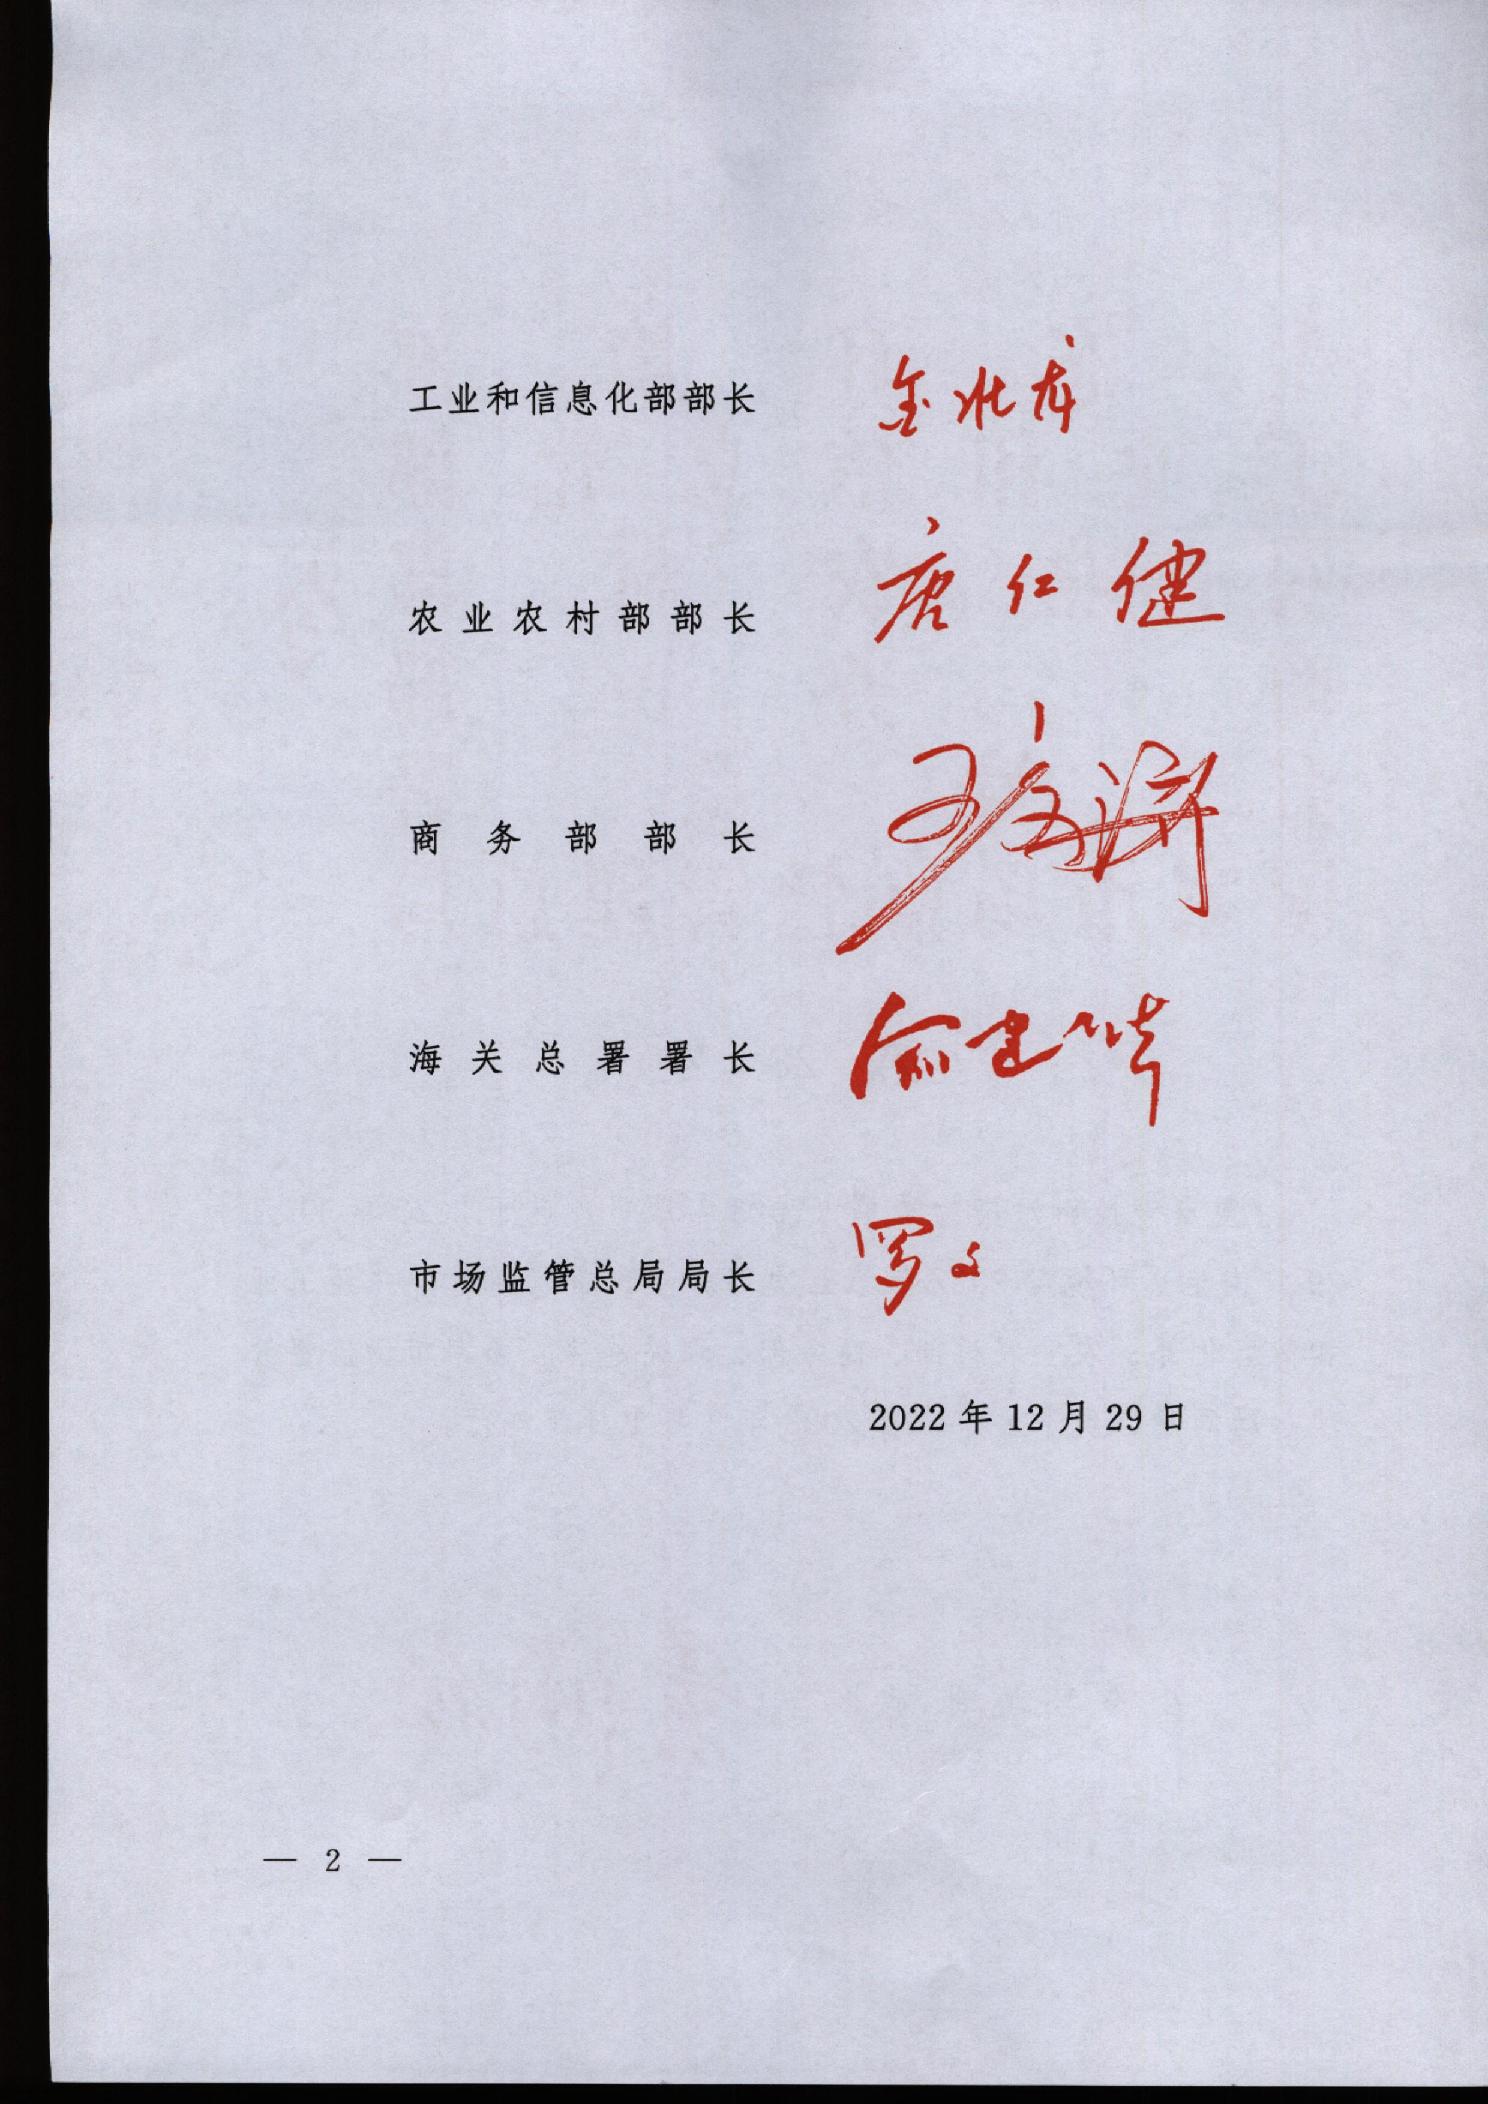 工业和信息化部部长 金壮龙
农业农村部部长 唐仁健
商务部部长 王文涛
海关总署署长 俞建华
市场监管总局局长 罗文
2022年12月29日
— 2 —